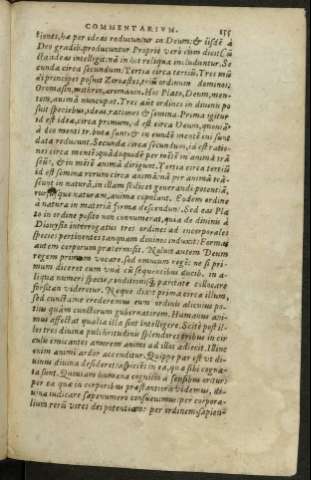 COMMENTARIVM. 155
tiones, hæ per ideas reducuntur in Deum: & iisdē à
Deo gradib. producuntur Propriè verò cùm dicit Cū
cta, ideas intelligit: nā in his reliqua includuntur. Se
cunda circa secundum. Tertia circa tertiū. Tres mū
di principes posuit Zoroastes, triū ordinum dominos,
Oromasin, mithrin, arimanin. Hos Plato, Deum, men-
tem, animā nuncupat. Tres aūt ordines in diuinis po
suit speciebus, ideas, rationes & semina. Prima igitur
id est ideæ, circa primum, id est circa Deum, quoniā
à deo menti tributæ sunt: & in eundē mentē cui sunt
datæ reducunt. Secunda circa secundum, id est ratio-
nes circa mentē: quādoquidē per mētē in animā trā
seūt, & in mētē animā dirigunt. Tertia circa tertiū
id est semina rerum circa animā: nā per animā trā-
seunt in naturā, in illam scilicet generandi potentiā,
rursusque naturam, animæ copulant. Eodem ordine
à natura in materiā formæ descendunt. Sed eas Pla
to in ordine posito non connumerat, quia de diuinis à
Dionysio interrogatus tres ordines ad incorporales
species pertinentes tanquam diuinos induxit: Formas
autem corporum prætermisit. Noluit autem Deum
regem primum vocare, sed omnium regē: ne si pri-
mum diceret cum vnà cū sequentibus ducib. in a-
liqua numeri specie, conditionisque paritate collocare
forsitan videretur. Neque dixit prima circa illum,
sed cuncta: ne crederemus eum ordinis alicuius po-
tius quàm cunctorum gubernatorem. Humanus ani-
mus affectat qualia illa sint intellegere. Scitè post il-
los tres diuinæ pulchritudinis splendores tribus in cir
culis emicantes amorem animi ad illos adiecit. Illinc
enim animi ardor accenditur. Quippe par est vt di-
uinus diuina desideret: aspiciēs in ea, quæ sibi cogna-
ta sunt. Quoniam humana cognitio à sensibus oritur:
per ea quæ in corporibus præstantiora videmus, di-
uina iudicare sæpenumero consueuimus: per corpora-
lium rerū vires dei potentiam: per ordinem sapien-